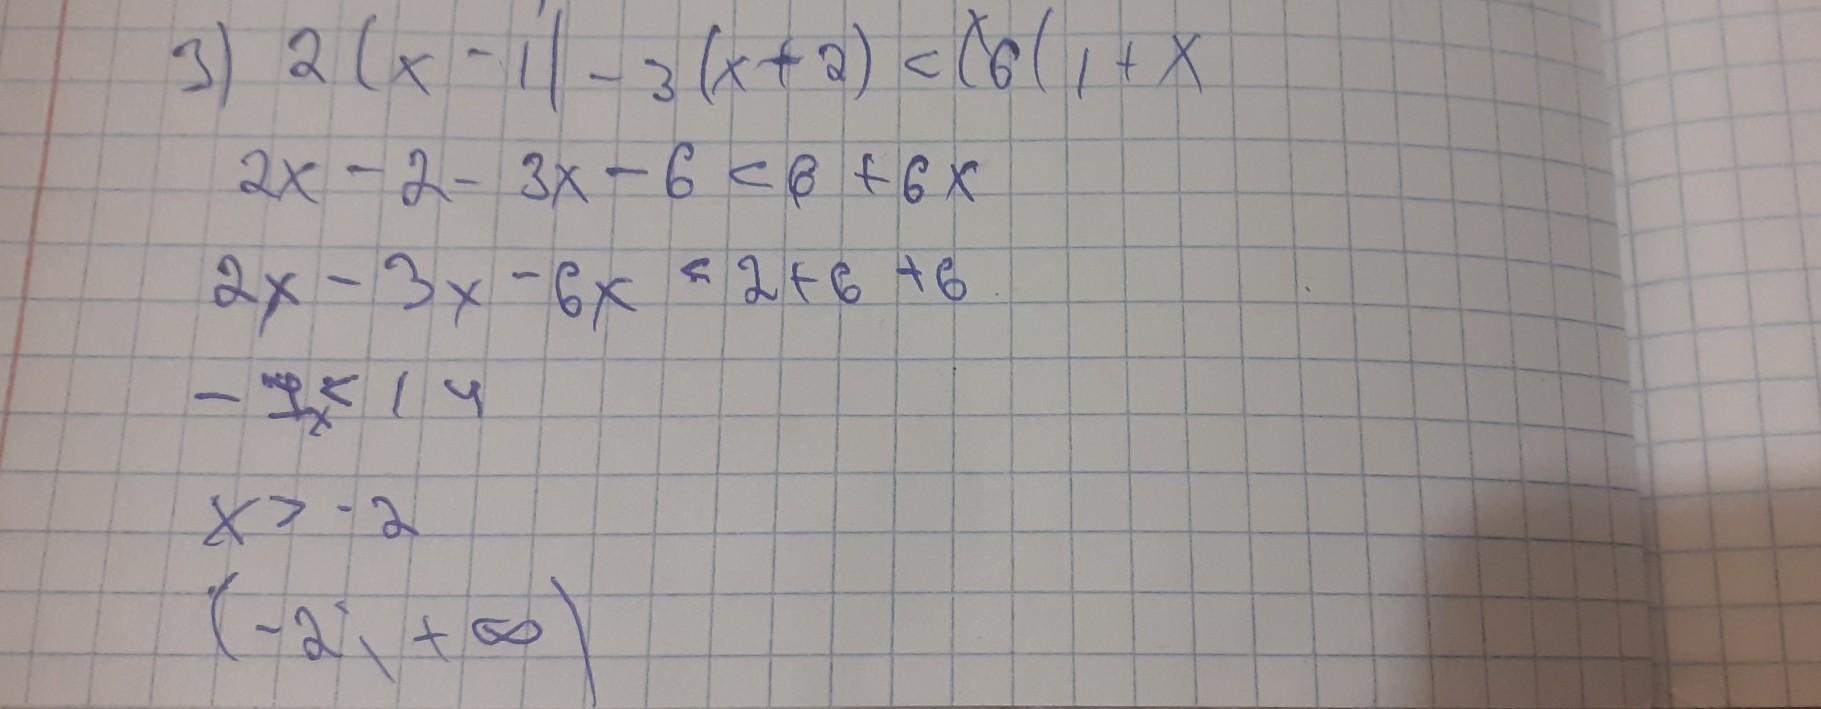 3) 2(x-1)-3(x+2)<(6(1+x
2x-2-3x-6<6+6x
2x-3x-6x<2+6+6
-7x<14
x>-2
(-2; +∞)